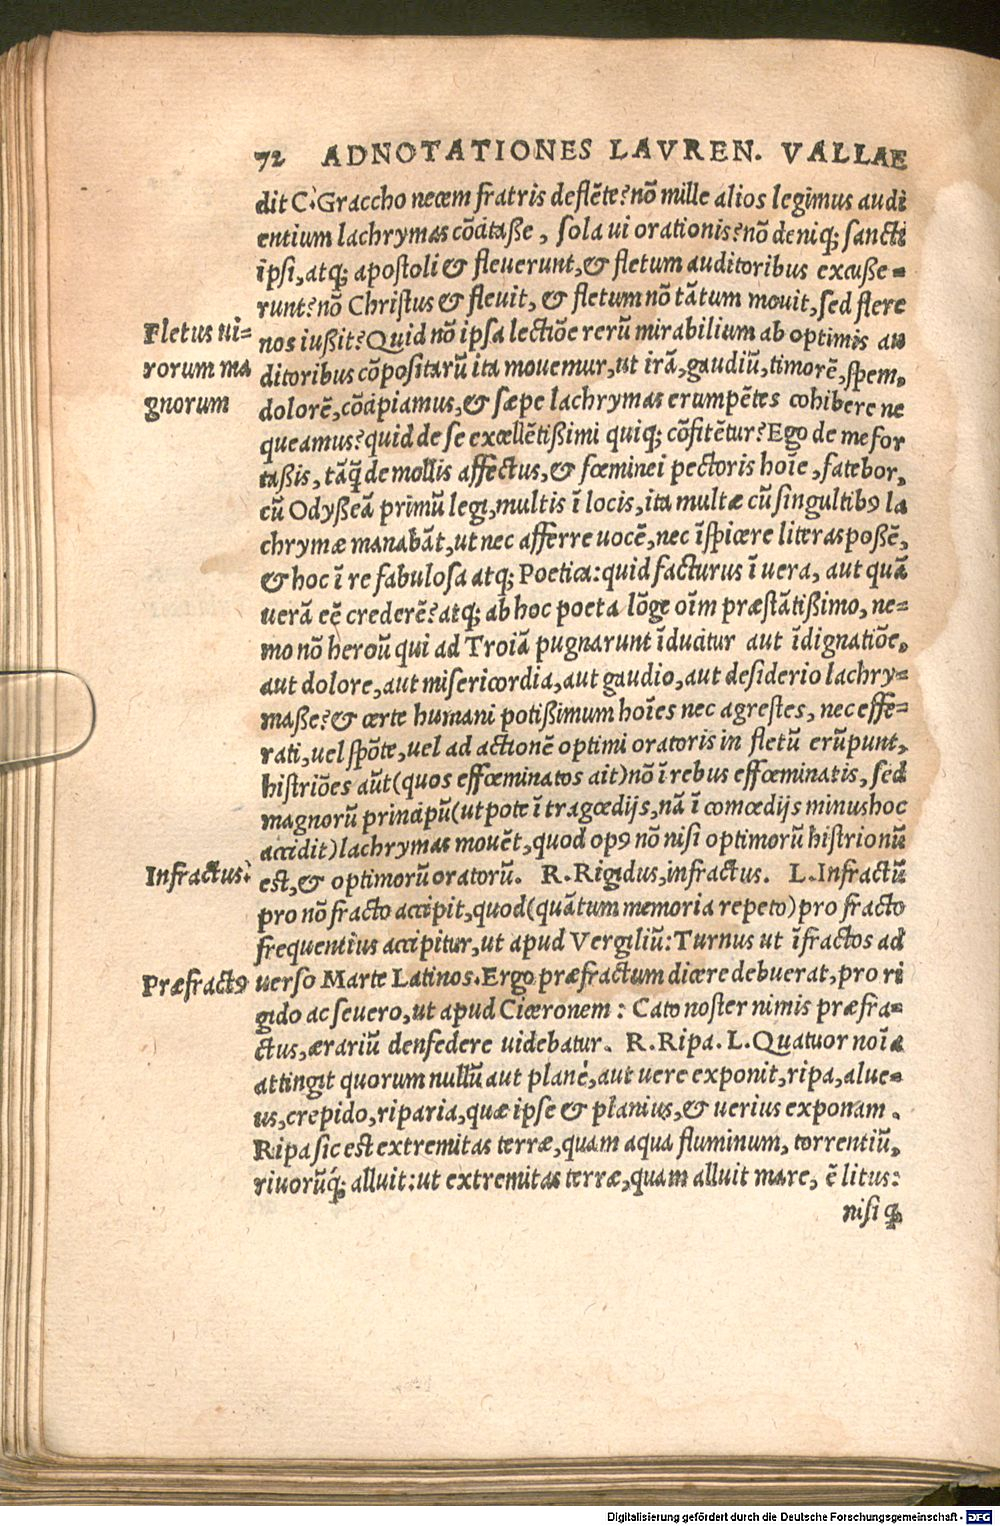 72 ADNOTATIONES LAVREN. VALLAE
dit C. Graccho necem fratris deflẽte? nõ mille alios legimus audi
entium lachrymas cõcitaſſe, ſola ui orationis? nõ deniq; ſancti
ipſi, atq; apoſtoli & fleuerunt, & fletum auditoribus excuſſe-
runt? nõ Chriſtus & fleuit, & fletum nõ tãtum mouit, ſed flere
Fletus ui-
nos iußit? Quid nõ ipſa lectiõe rerũ mirabilium ab optimis au
rorum ma
ditoribus cõpoſitarũ ita mouemur, ut irã, gaudiũ, timorẽ, ſpem,
gnorum
dolorẽ, cõcipiamus, & ſæpe lachrymas erumpẽtes cohibere ne
queamus? quid de ſe excellẽtißimi quiq; cõfitẽtur? Ego de me for
taßis, tãq̃ de mollis affectus, & fœminei pectoris hoĩe, fatebor,
cũ Odyßeã primũ legi, multis ĩ locis, ita multæ cũ ſingultibꝰ la
chrymæ manabãt, ut nec afferre uocẽ, nec ĩſpicere literas poßẽ,
& hoc ĩ re fabuloſa atq; Poetica: quid facturus ĩ uera, aut quã
uerã eẽ crederẽ? atq; ab hoc poeta lõge oĩm præſtãtißimo, ne-
mo nõ heroũ qui ad Troiã pugnarunt ĩducitur aut ĩdignatiõe,
aut dolore, aut miſericordia, aut gaudio, aut deſiderio lachry-
maße? & certe humani potißimum hoĩes nec agreſtes, nec effe-
rati, uel ſpõte, uel ad actionẽ optimi oratoris in fletũ erũpunt,
hiſtriões aũt (quos effœminatos ait) nõ ĩ rebus effœminatis, ſed
magnorũ principũ (ut pote ĩ tragœdijs, nã ĩ comœdijs minus hoc
accidit) lachrymas mouẽt, quod opꝰ nõ niſi optimorũ hiſtrionũ
Infractus.
eſt, & optimorũ oratorũ. R. Rigidus, infractus. L. Infractũ
pro nõ fracto accipit, quod (quãtum memoria repeto) pro fracto
frequentius accipitur, ut apud Vergiliũ: Turnus ut ĩfractos ad
Præfractꝰ
uerſo Marte Latinos. Ergo præfractum dicere debuerat, pro ri
gido ac ſeuero, ut apud Ciceronem: Cato noſter nimis præfra-
ctus, ærariũ denfedere uidebatur. R. Ripa. L. Quatuor noĩa
attingit quorum nullũ aut planè, aut uere exponit, ripa, alue-
us, crepido, riparia, quæ ipſe & planius, & uerius exponam.
Ripa ſic eſt extremitas terræ, quam aqua fluminum, torrentiũ,
riuorũq́; alluit: ut extremitas terræ, quam alluit mare, ẽ litus:
niſi
Digitalisierung gefördert durch die Deutsche Forschungsgemeinschaft - DFG